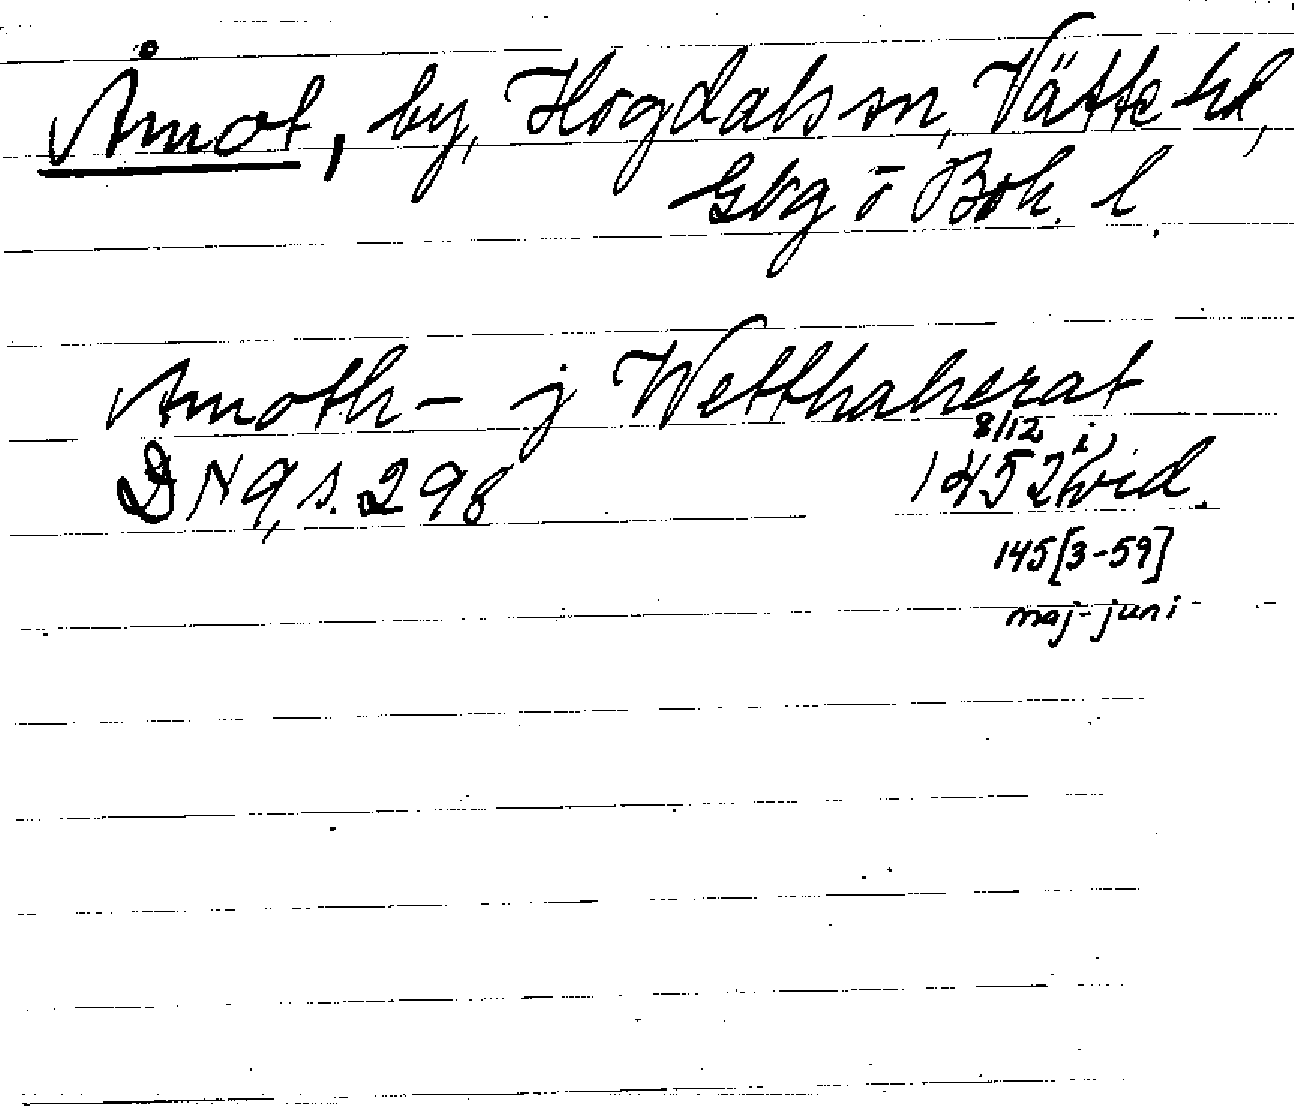 Åmot, by, Hogdals sn, Vätte hd,
Gbg o Boh. l.
Amoth - j Wetthaherat
8/12 i
DN 9, s. 298 1452 vid.
145[3-59]
maj-juni